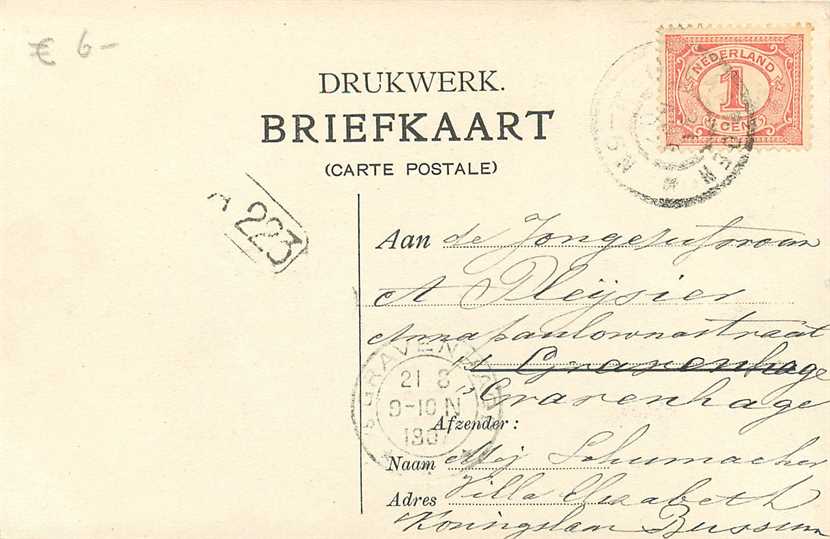 € 6-
DRUKWERK.
BRIEFKAART
(CARTE POSTALE)
NEDERLAND
1
CENT
A 223
Aan de Jongejufvrouw
A Pleÿsier
Annapaulownastraat
s Gravenhage
s' Gravenhage
'S GRAVENHAGE
21 8
9-10 N
190
Afzender:
Naam Mej Schumacher
Adres Villa Elisabeth
Koningslaan Bussum